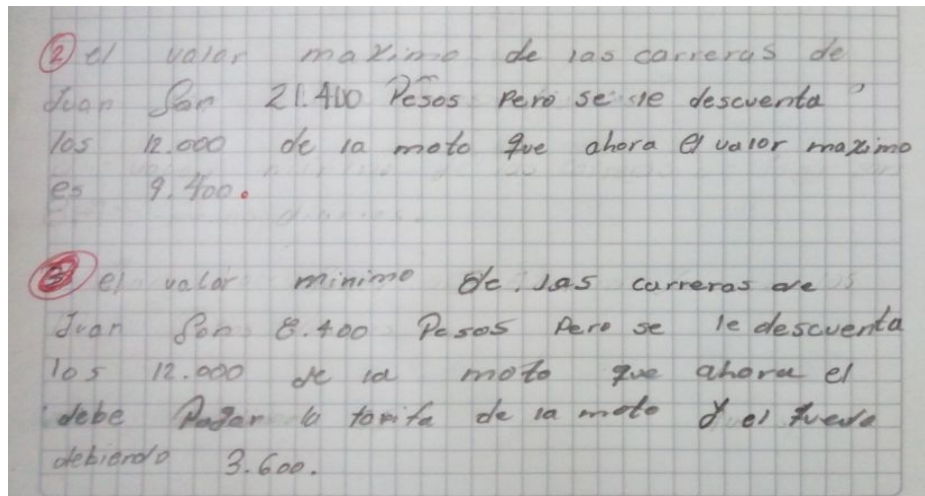 ② el valor maximo de las carreras de
Juan son 21.400 Pesos Pero se le descuenta
los 12.000 de la moto que ahora el valor maximo
es 9.400.
③ el valor minimo de las carreras de
Juan son 8.400 Pesos Pero se le descuenta
los 12.000 de la moto que ahora el
debe Pagar la tarifa de la moto y el queda
debiendo 3.600.